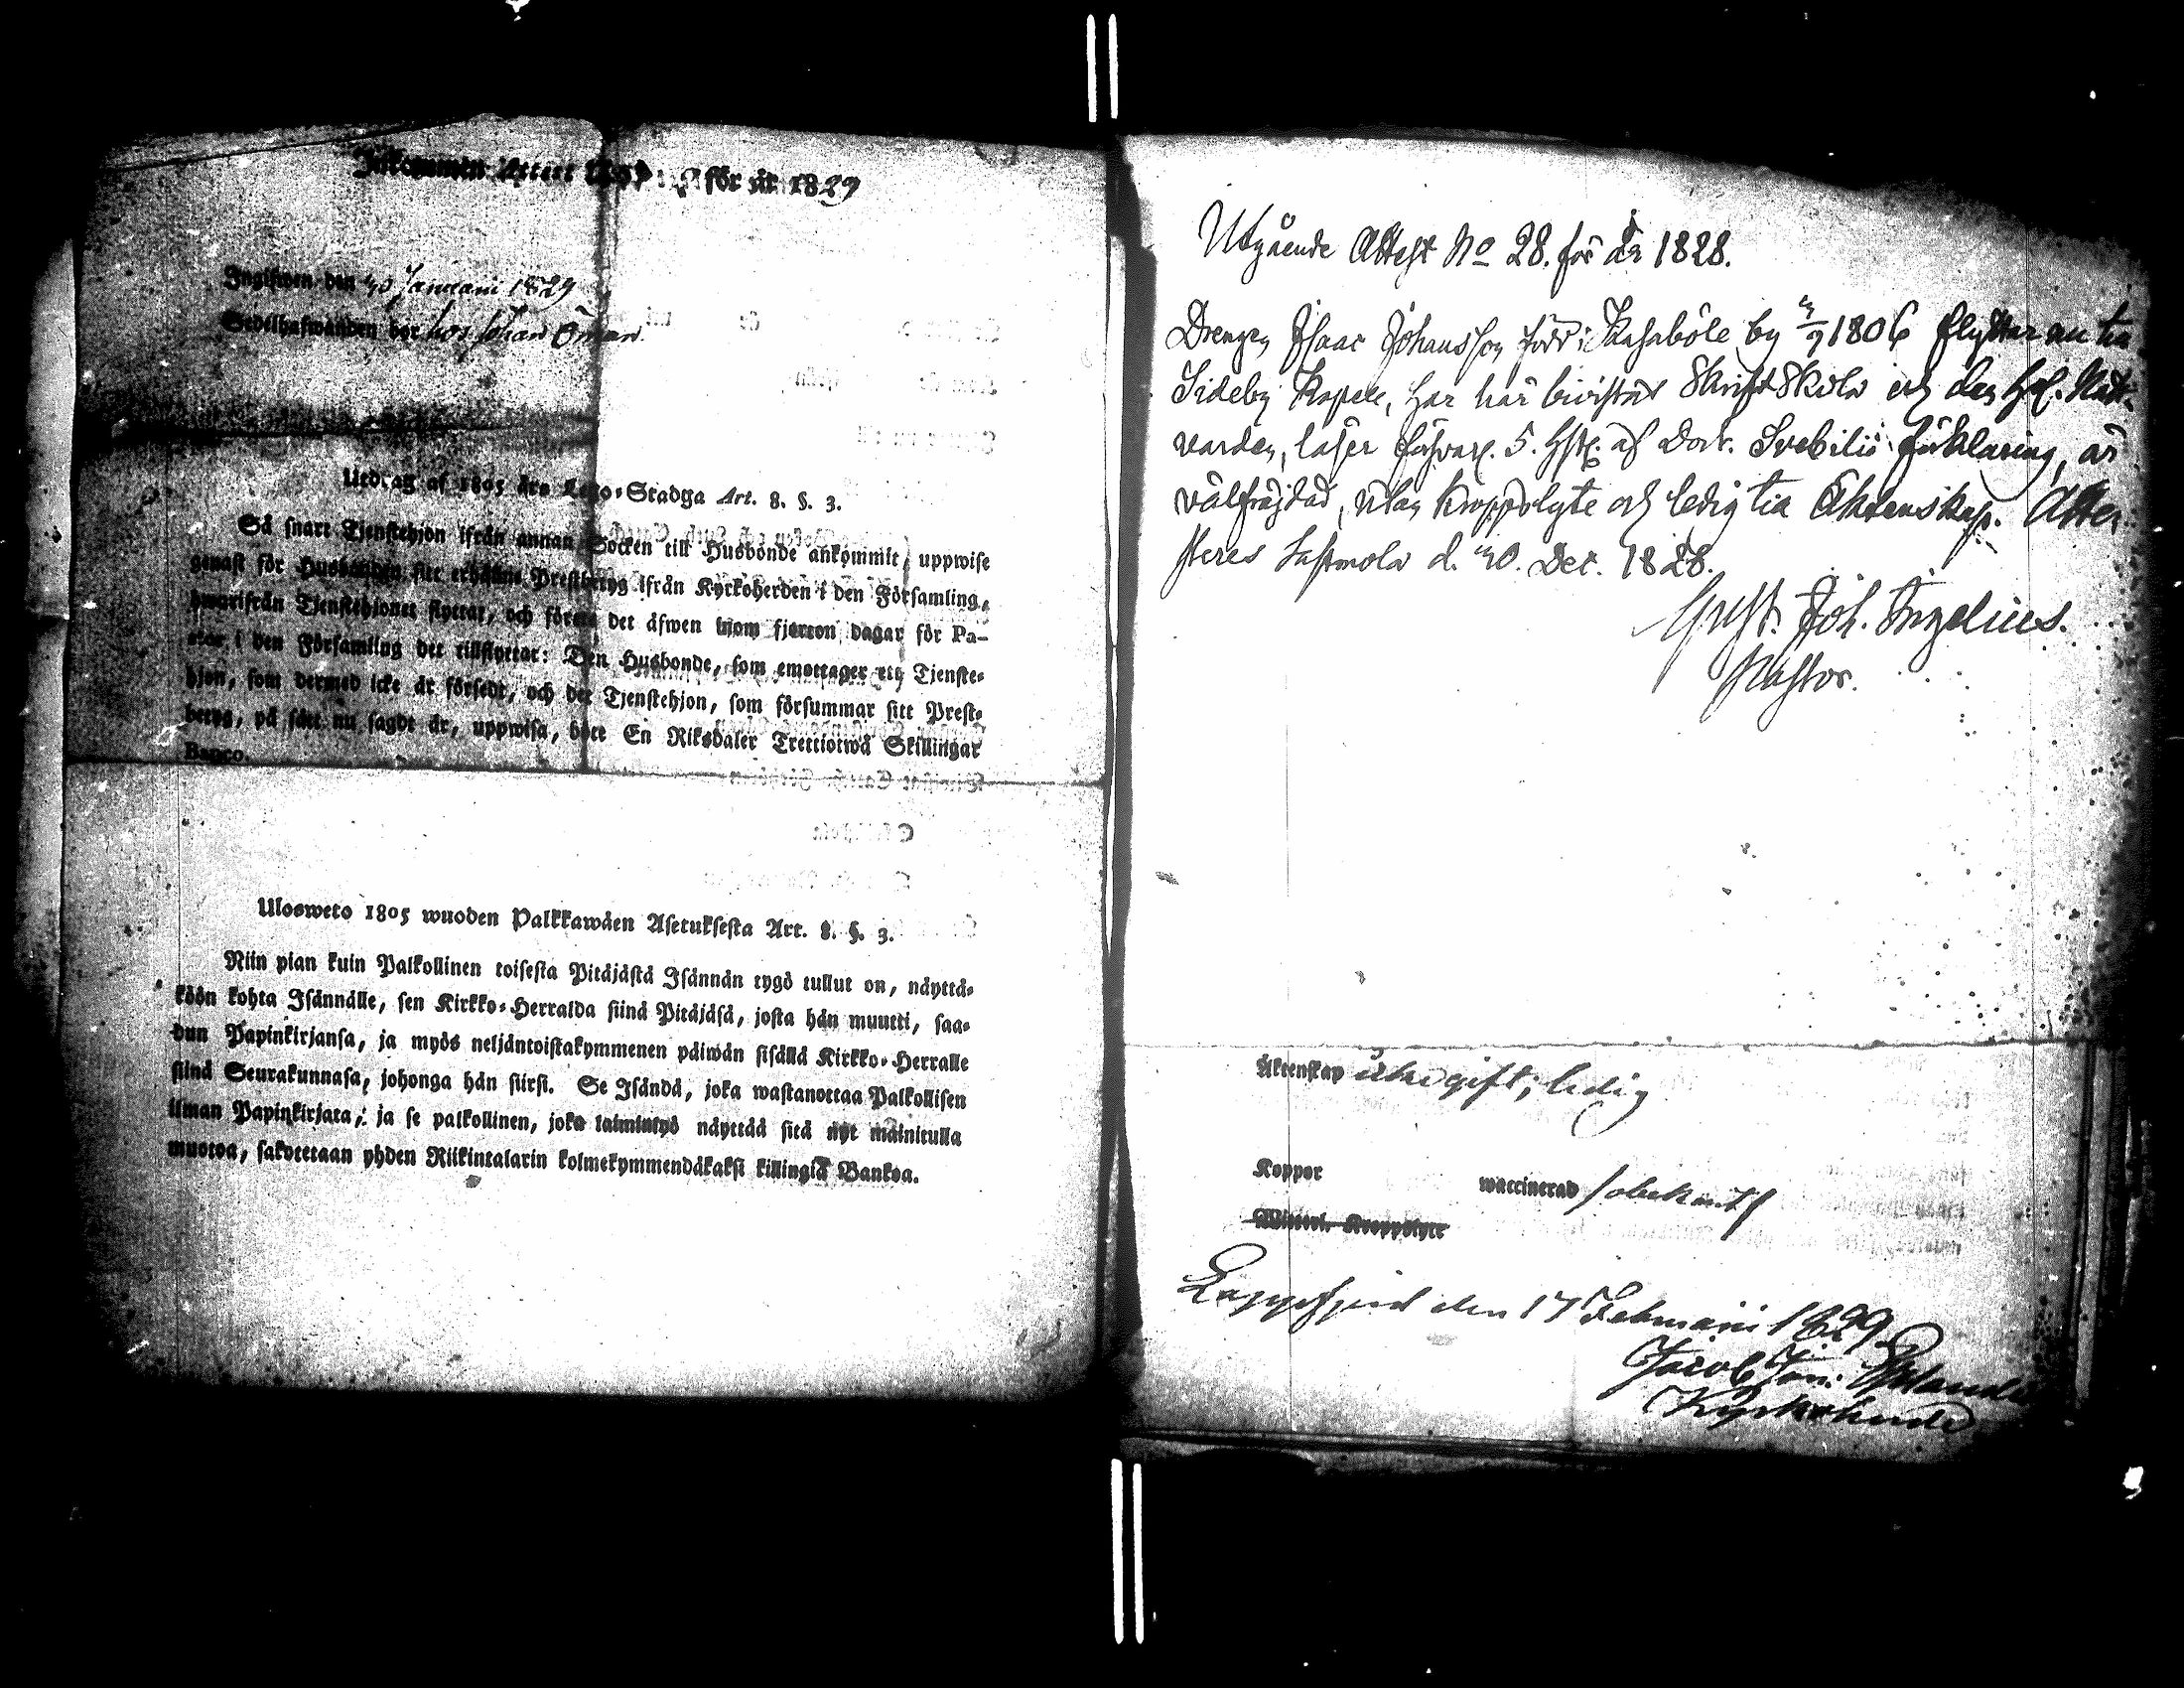 Inkommen Attest för år 1829
Inglifwen den 30 Januari 1829
Sedelhafwanden bor hos Johan Öman.
Utdrag af 1805 års Lego-Stadga Art. 8. §. 3.
Så snart Tjenstehjon ifrån annan Socken till Husbonde ankommit, uppwise
genast för Husbonden sitt erhållne Prestbetyg ifrån Kyrkoherden i den Församling,
hwarifrån Tjenstehjonet flyttat, och förete det äfwen inom fjorton dagar för Pa-
stor i den Församling det tillflyttat: Den Husbonde, som emottager ett Tjenste-
hjon, som dermed icke är försedt, och det Tjenstehjon, som försummar sitt Prest-
betyg, på sätt nu sagdt är, uppwisa, böte En Riksdaler Trettiotwå Skillingar
Banco.
Ulosweto 1805 wuoden Palkkawäen Asetuksesta Art. 8. §. 3.
Niin pian kuin Palkollinen toisesta Pitäjästä Isännän tygö tullut on, näyttä-
köön kohta Isännälle, sen Kirkko-Herralda siinä Pitäjäsä, josta hän muutti, saa-
dun Papinkirjansa, ja myös neljäntoistakymmenen päiwän sisällä Kirkko-Herralle
siinä Seurakunnasa, johonga hän siirsi. Se Isändä, joka wastanottaa Palkollisen
ilman Papinkirjata, ja se palkollinen, joka laimintyö näyttää sitä nyt mainitulla
muotoa, sakotetaan yhden Riikintalarin kolmekymmendäkaksi killingiä Bankoa.
Utgående Attest No 28. för år 1828.
Drengen Isaac Johansson född i Kasaböle by 1806 flyttar nu till
Sideby Kapell, har här bivistat Skriftskola och den Hel. Natt-
varden, läser försvarl. 5. Hst. af Doct. Svebilii förklaring, är
välfrejdad, utan kroppslyte och ledig till Äktenskap. Atte-
steres Sastmola d. 30. Dec. 1828.
Gust. Joh. Ingelius.
Pastor.
Äktenskap icke gift; ledig
Koppor waccinerad /obekant/
Witterl. Kroppslyte
Lappfjerd den 17 Februarii 1829
Jacob Joh.
Kyrkoherde